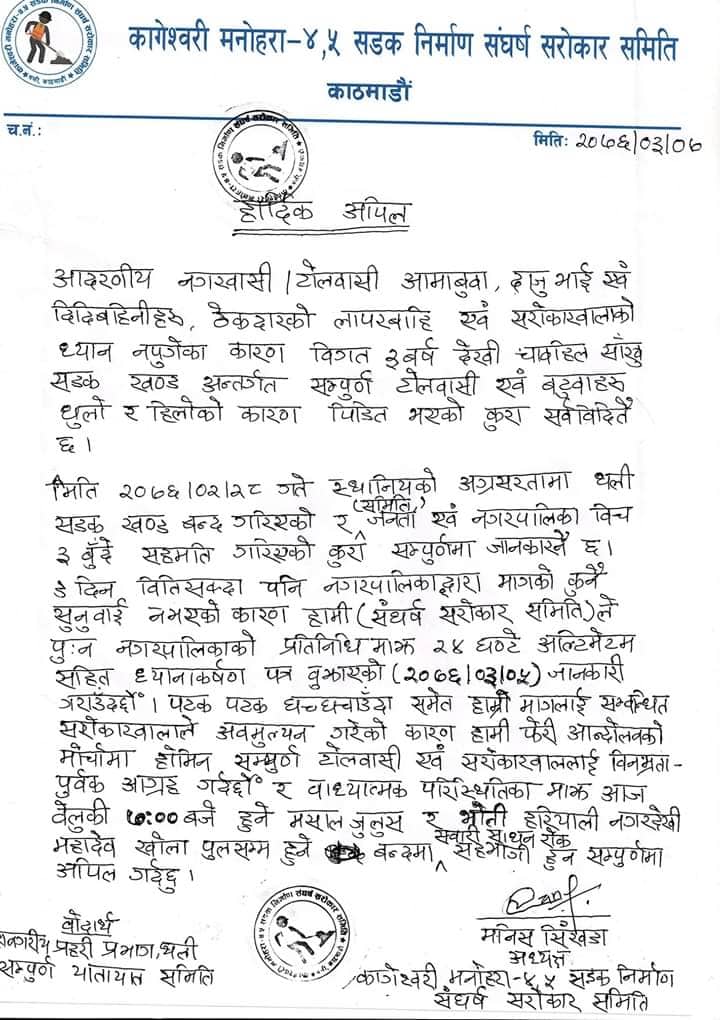 कागेश्वरी मनोहरा-४,५ सडक निर्माण संघर्ष सरोकार समिति
काठमाडौं
च.नं.:
मिति: २०७६/०३/०७
हार्दिक अपिल
आदरणीय नगरवासी/टोलवासी आमाबुवा, दाजुभाई एवं
दिदिबहिनीहरु, ठेकदारको लापरबाहि एवं सरोकारवालाको
ध्यान नपुगेका कारण विगत ३ बर्ष देखी चावहिल साँखु
सडक खण्ड अन्तर्गत सम्पुर्ण टोलवासी एवं बटुवाहरु
धुलो र हिलोको कारण पिडित भएको कुरा सर्वविदितै
छ।
मिति २०७६/०२/२८ गते स्थानियको अग्रसरतामा थली
सडक खण्ड बन्द गरिएको र (समिति,) जनता एवं नगरपालिका विच
३ बुँदे सहमति गरिएको कुरा सम्पुर्णमा जानकारनै छ।
८ दिन वितिसक्दा पनि नगरपालिकाद्वारा मागको कुनै
सुनुवाई नभएको कारण हामी (संघर्ष सरोकार समिति) ले
पुःन नगरपालिकाको प्रतिनिधि माझ २४ घण्टे अल्टिमेटम
सहित ध्यानाकर्षण पत्र वुझाएको (२०७६/०३/०५) जानकारी
गराउँदर्छौं। पटक पटक घच्घचाउँदा समेत हाम्रो मागलाई सम्बन्धित
सरोकारवालाले अवमुल्यन गरेको कारण हामी फेरी आन्दोलनको
मोर्चामा होमिन सम्पुर्ण टोलवासी एवं सरोकारवाललाई विनम्रता-
पुर्वक आग्रह गर्दर्छौं र वाध्यात्मक परिस्थितिका माझ आज
वेलुकी ७:०० बजे हुने मसाल जुलुस र भोली हरियाली नगरदेखी
महादेव खोला पुलसम्म हुने बन्दमा सवारी साधन रोक सहभागी हुन सम्पुर्णमा
अपिल गर्दछु।
वोदार्थ
प्रहरी प्रभाग, थली
सम्पुर्ण यातायात समिति
मनिस सिंखडा
अध्यक्ष
कागेश्वरी मनोहरा-४,५ सडक निर्माण
संघर्ष सरोकार समिति